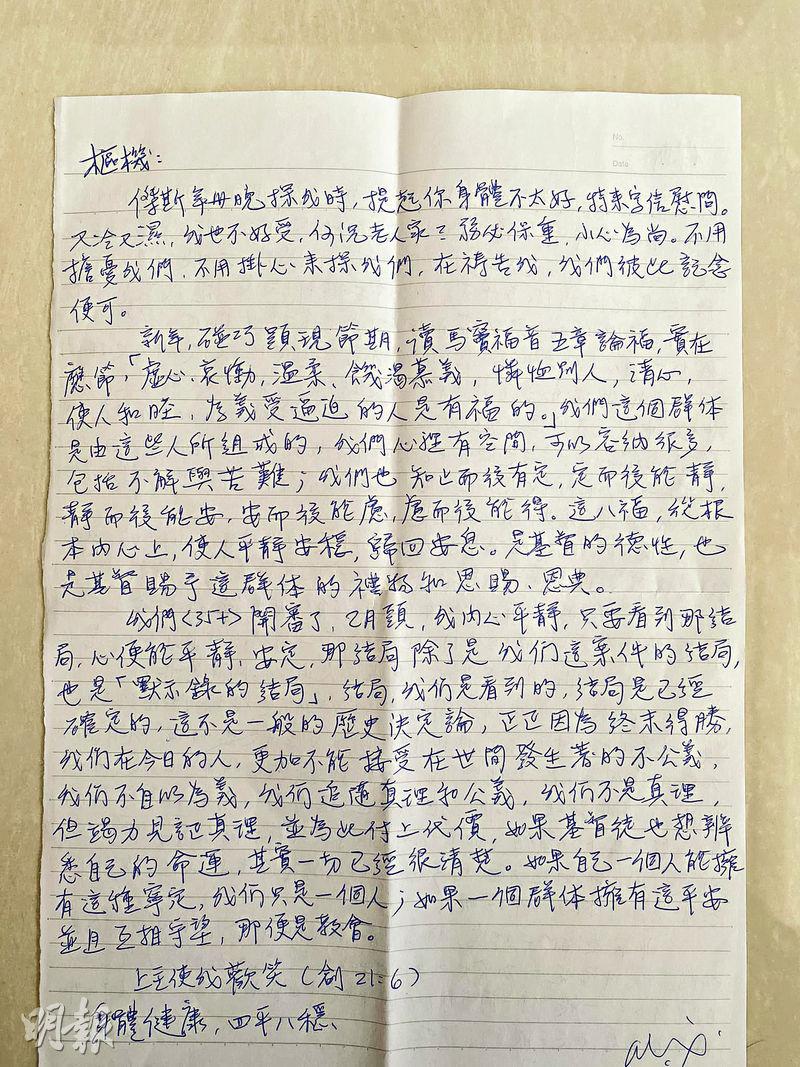 No.
Date
樞機：
傑斯等毋晚探我時，提起你身體不太好，特來字信慰問。
又冷又濕，我也不好受，何況老人家？務必保重，小心為尚。不用
擔憂我們，不用掛心來探我們，在禱告我，我們彼此記念
便可。
新年，碰巧顯現節期，讀馬竇福音五章論福，實在
應節，「虛心、哀慟、溫柔、饑渴慕義，憐恤別人，清心，
使人和睦，為義受逼迫的人是有福的。」我們這個群体
是由這些人所組成的，我們心裡有空間，可以容納很多，
包括不解與苦難；我們也知止而後有定，定而後能靜，
靜而後能安，安而後能慮，慮而後能得。這八福，從根
本內心上，使人平靜安穩，歸回安息。是基督的德性，也
是基督賜予這群体的禮物和恩賜、恩典。
我們<35+>開審了，2月頭，我內心平靜，只要看到那結
局，心便能平靜、安定，那結局除了是我们這案件的結局，
也是「默示錄的結局」，結局，我们是看到的，結局是已經
確定的，這不是一般的歷史決定論，正正因為終末得勝，
我们在今日的人，更加不能接受在世間發生著的不公義，
我们不自以為義，我们追隨真理和公義，我们不是真理，
但竭力見証真理，並為此付上代價，如果基督徒也想辨
悉自己的命運，其實一切已經很清楚。如果自己一個人能擁
有這種寧定，我们只是一個人；如果一個群体擁有這平安
並且互相守望，那便是教會。
上主使我歡笑（創21:6）
身體健康，四平八穩、
明報